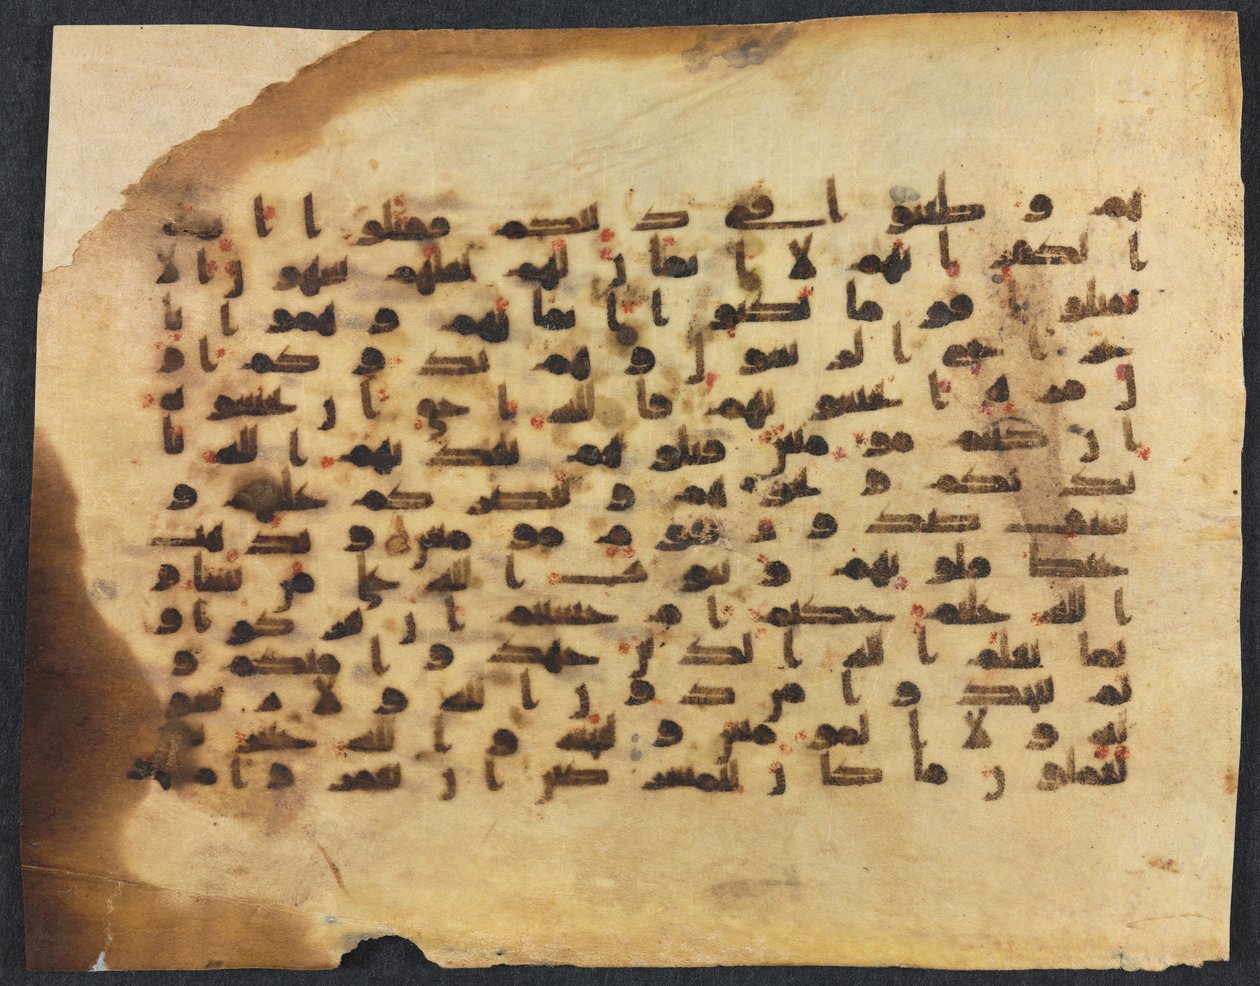 هم وطعنوا في دينكم فقتلوا ائمة
الكفر انهم لا ايمن لهم لعلهم ينتهون الا
تقتلون قوما نكثوا ايمنهم وهموا با
خراج الرسول وهم بدوكم او
ل مرة اتخشونهم فالله احق ان تخشوه
ان كنتم مومنين قتلوهم يعذبهم الله با
يديكم ويخزهم وينصركم عليهم و
يشف صدور قوم مومنين ويذهب
غيظ قلوبهم ويتوب الله على من يشا و
الله عليم حكيم ام حسبتم ان تتركوا و
لما يعلم الله الذين جهدوا منكم و
لم يتخذوا من دون الله ولا رسو
له ولا المومنين وليجة والله خبير
بما تعملون ما كان للمشركين ان يعمروا